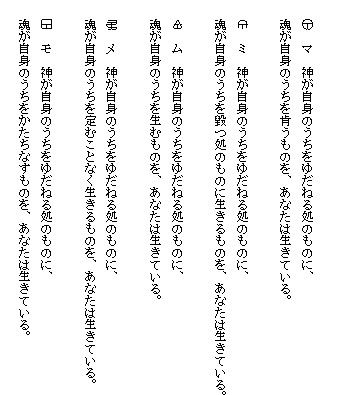 マ 神が自身のうちをゆだねる処のものに、
魂が自身のうちを肯うものを、あなたは生きている。
ミ 神が自身のうちをゆだねる処のものに、
魂が自身のうちを毀つ処のものに生きるものを、あなたは生きている。
ム 神が自身のうちをゆだねる処のものに、
魂が自身のうちを生むものを、あなたは生きている。
メ 神が自身のうちをゆだねる処のものに、
魂が自身のうちを定むことなく生きるものを、あなたは生きている。
モ 神が自身のうちをゆだねる処のものに、
魂が自身のうちをかたちなすものを、あなたは生きている。